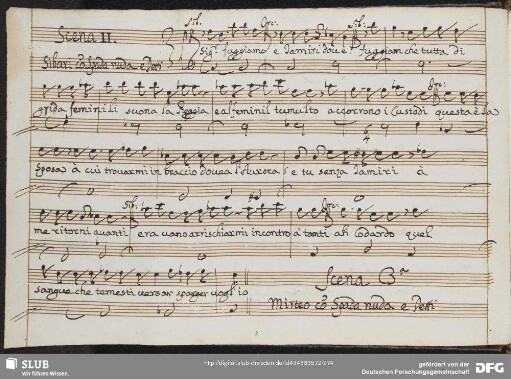 Scena II
Sib: Orc: Sib:
Sig.r fuggiamo e Tamiri dov'è fuggiam che tutta di
Sibari cõ spada nuda e Detti
Orc:
grida feminili suona la Reggia e al feminil tumulto accorrono i Custodi questa è la
sposa a cui trovarmi in braccio dovea l'Aurora e tu senza Tamiri à
Sib: Orc:
me ritorni avanti era vano arrischiarmi incontro a tanti ah Codardo quel
sangue che temesti versar sparger vogl'io
Scena 3.a
Mirteo cõ Spada nuda e Detti
2
SLUB
Wir führen Wissen.
http://digital.slub-dresden.de/id434393572/274
gefördert von der
Deutschen Forschungsgemeinschaft
DFG